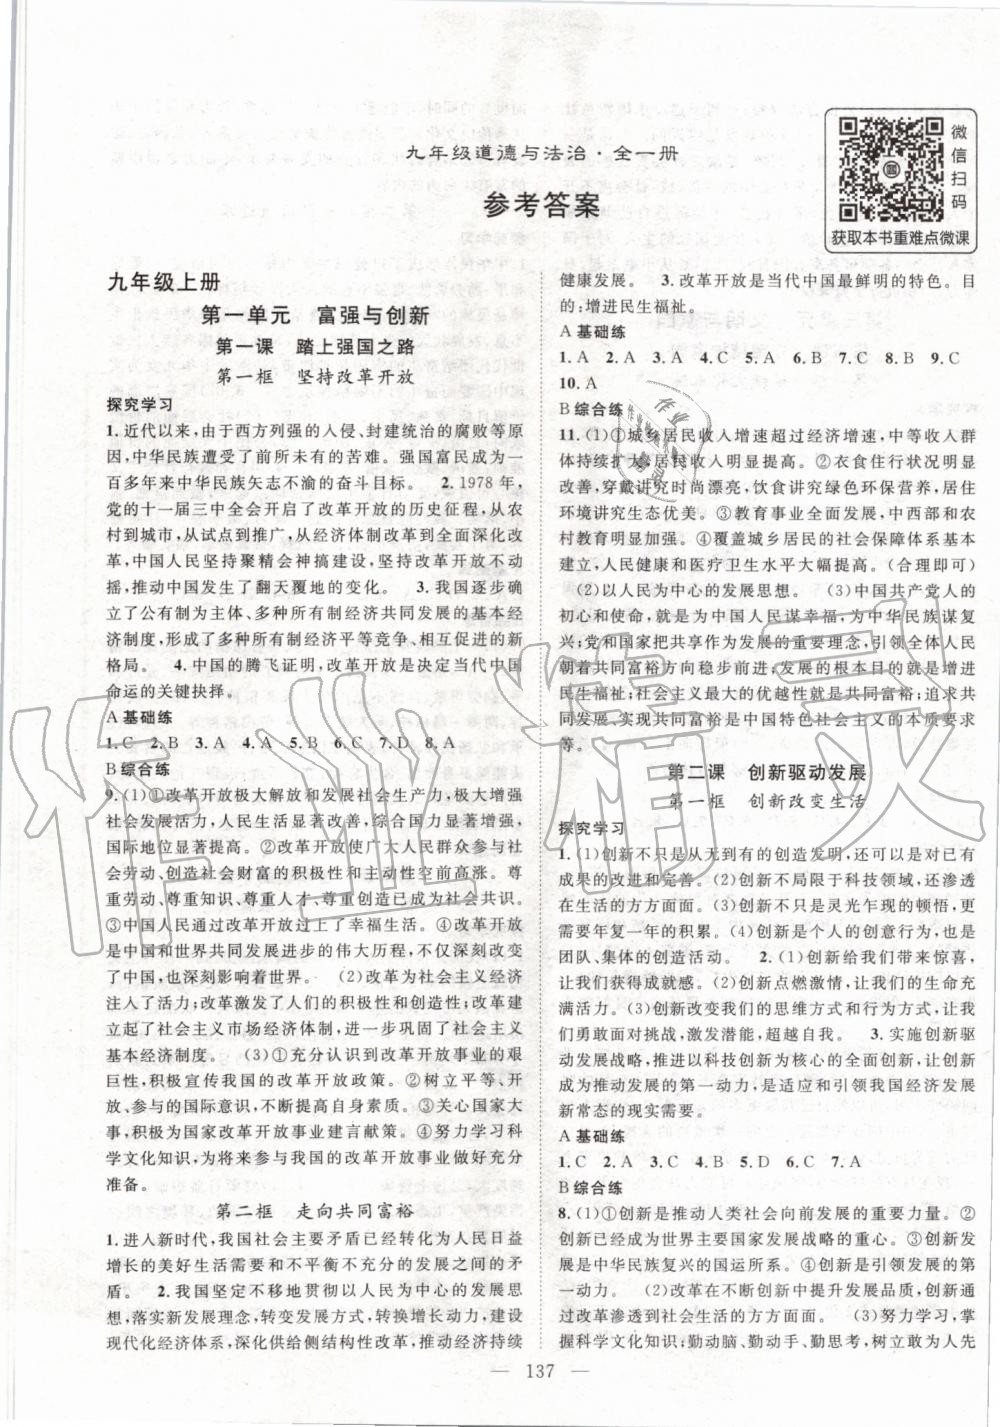 九年级道德与法治·全一册
参考答案
微信扫码
获取本书重难点微课
九年级上册
第一单元 富强与创新
第一课 踏上强国之路
第一框 坚持改革开放
探究学习
1.近代以来,由于西方列强的入侵、封建统治的腐败等原
因,中华民族遭受了前所未有的苦难。强国富民成为一
百多年来中华民族矢志不渝的奋斗目标。 2.1978年,
党的十一届三中全会开启了改革开放的历史征程,从农
村到城市,从试点到推广,从经济体制改革到全面深化改
革,中国人民坚持聚精会神搞建设,坚持改革开放不动
摇,推动中国发生了翻天覆地的变化。 3.我国逐步确
立了公有制为主体、多种所有制经济共同发展的基本经
济制度,形成了多种所有制经济平等竞争、相互促进的新
格局。 4.中国的腾飞证明,改革开放是决定当代中国
命运的关键抉择。
A 基础练
1.C 2.B 3.A 4.A 5.B 6.C 7.D 8.A
B 综合练
9.(1)①改革开放极大解放和发展社会生产力,极大增强
社会发展活力,人民生活显著改善,综合国力显著增强,
国际地位显著提高。②改革开放使广大人民群众参与社
会劳动、创造社会财富的积极性和主动性空前高涨。尊
重劳动、尊重知识、尊重人才、尊重创造成为社会共识。
③中国人民通过改革开放过上了幸福生活。④改革开放
是中国和世界共同发展进步的伟大历程,不仅深刻改变
了中国,也深刻影响着世界。 (2)改革为社会主义经济
注入了活力;改革激发了人们的积极性和创造性;改革建
立起了社会主义市场经济体制,进一步巩固了社会主义
基本经济制度。 (3)①充分认识到改革开放事业的艰
巨性,积极宣传我国的改革开放政策。②树立平等、开
放、参与的国际意识,不断提高自身素质。③关心国家大
事,积极为国家改革开放事业建言献策。④努力学习科
学文化知识,为将来参与我国的改革开放事业做好充分
准备。
第二框 走向共同富裕
1.进入新时代,我国社会主要矛盾已经转化为人民日益
增长的美好生活需要和不平衡不充分的发展之间的矛
盾。 2.我国坚定不移地贯彻以人民为中心的发展思
想,落实新发展理念,转变发展方式,转换增长动力,建设
现代化经济体系,深化供给侧结构性改革,推动经济持续
健康发展。 3.改革开放是当代中国最鲜明的特色。目
的:增进民生福祉。
A 基础练
1.A 2.A 3.A 4.C 5.A 6.B 7.B 8.B 9.C
10.A
B 综合练
11.(1)①城乡居民收入增速超过经济增速,中等收入群
体持续扩大,居民收入明显提高。②衣食住行状况明显
改善,穿戴讲究时尚漂亮,饮食讲究绿色环保营养,居住
环境讲究生态优美。③教育事业全面发展,中西部和农
村教育明显加强。④覆盖城乡居民的社会保障体系基本
建立,人民健康和医疗卫生水平大幅提高。(合理即可)
(2)以人民为中心的发展思想。 (3)中国共产党人的
初心和使命,就是为中国人民谋幸福,为中华民族谋复
兴;党和国家把共享作为发展的重要理念,引领全体人民
朝着共同富裕方向稳步前进;发展的根本目的就是增进
民生福祉;社会主义最大的优越性就是共同富裕;追求共
同发展、实现共同富裕是中国特色社会主义的本质要求
等。
第二课 创新驱动发展
第一框 创新改变生活
探究学习
1.(1)创新不只是从无到有的创造发明,还可以是对已有
成果的改进和完善。(2)创新不局限于科技领域,还渗透
在生活的方方面面。(3)创新不只是灵光乍现的顿悟,更
需要年复一年的积累。(4)创新是个人的创意行为,也是
团队、集体的创造活动。 2.(1)创新给我们带来惊喜,
让我们获得成就感。(2)创新点燃激情,让我们的生命充
满活力。(3)创新改变我们的思维方式和行为方式,让我
们勇敢面对挑战,激发潜能,超越自我。 3.实施创新驱
动发展战略,推进以科技创新为核心的全面创新,让创新
成为推动发展的第一动力,是适应和引领我国经济发展
新常态的现实需要。
A 基础练
1.C 2.A 3.C 4.B 5.D 6.C 7.A
B 综合练
8.(1)①创新是推动人类社会向前发展的重要力量。②
创新已经成为世界主要国家发展战略的重心。③创新关
乎中华民族复兴的国运所系。④创新是引领发展的第
一动力。 (2)改革在不断创新中提升发展品质,创新通
过改革渗透到社会生活的方方面面。 (3)努力学习,掌
握科学文化知识;勤动脑、勤动手、勤思考,树立敢为人先
— 137 —